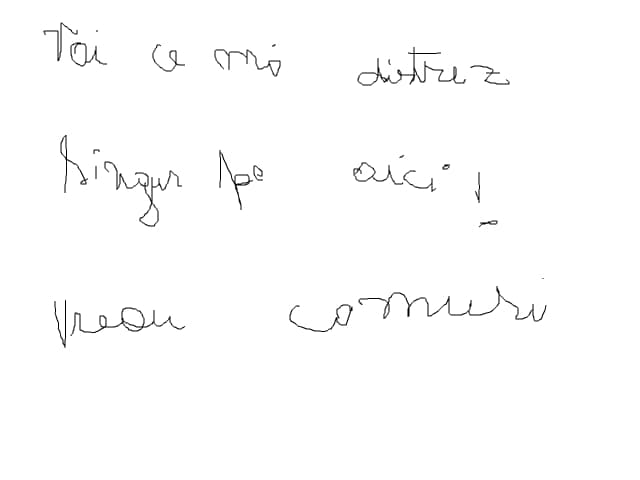 Vai ce mă distrez
singur pe aici!
vreau comuri